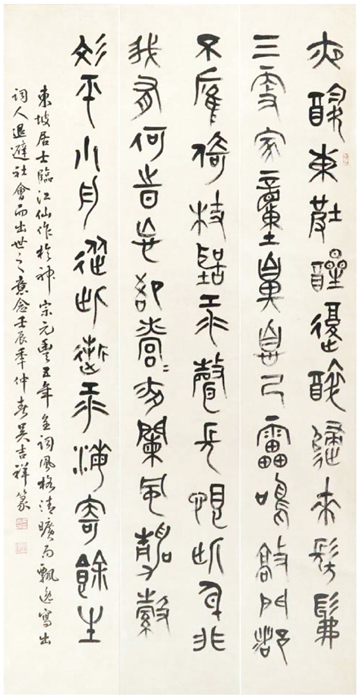 夜飲東坡醒復醉歸來髣髴
三更家童鼻息已雷鳴敲門都
不應倚杖聽江聲長恨此身非
我有何時忘卻營〻夜闌風靜縠
紋平小舟從此逝江海寄餘生
東坡居士臨江仙作於神宗元豐五年全詞風格清曠而飄逸寫出
詞人退避社會而出世之意念壬辰年仲春吳吉祥篆